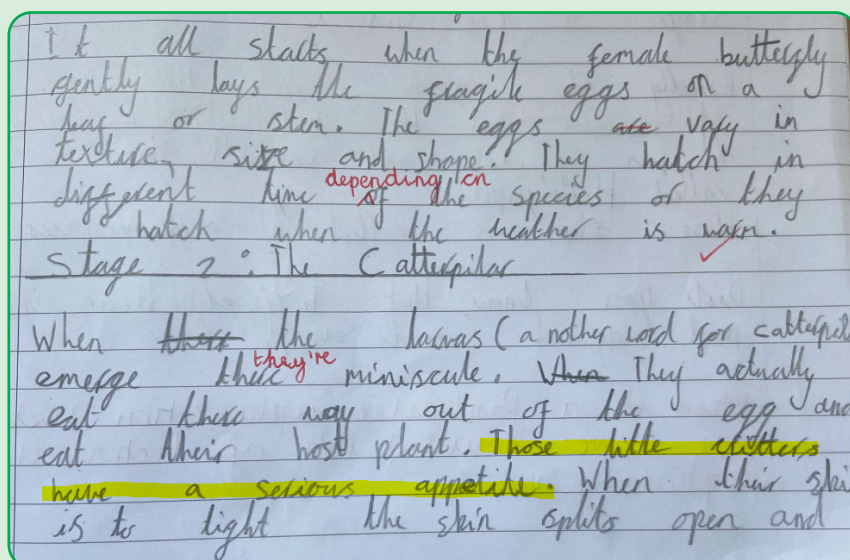 It all starts when the female butterfly
gently lays the fragile eggs on a
leaf or stem. The eggs are vary in
texture, size and shape. They hatch in
different time depending on of the species or they
hatch when the weather is warm.
Stage 2: The Catterpilar
When there the larvas (a nother word for catterpil
emerge their they're miniscule. When They actually
eat there way out of the egg and
eat their host plant. Those little critters
have a serious appetite. When their ski
is to tight the skin splits open and